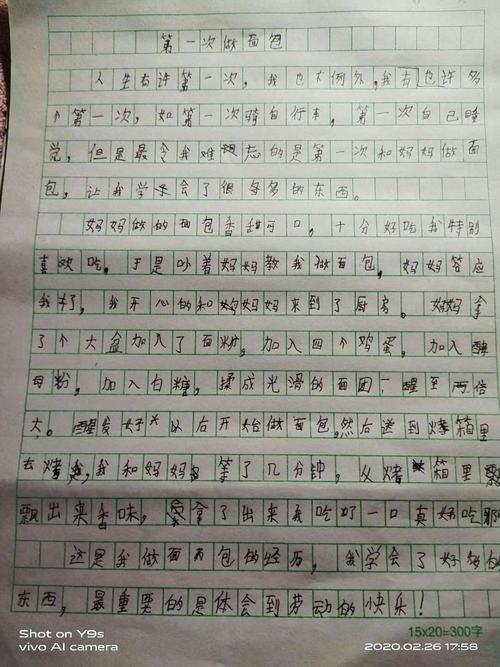 第一次做面包
人生有许第一次，我也不例外，我有也许多
个第一次，如第一次骑自行车，第一次自己睡
觉，但是最令我难忘的是第一次和妈妈做面
包，让我学会了很多的东西。
妈妈做的面包香甜可口，十分好吃我特别
喜欢吃。于是吵着妈妈教我做面包，妈妈答应
我了，我开心的和妈妈来到了厨房。妈妈拿
了个大盆加入了面粉，加入四个鸡蛋，加入醒
母粉，加入白糖，揉成光滑的面团，醒至两倍
大。醒发好以后开始做面包，然后送到烤箱里
去烤，我和妈妈等了几分钟，从烤箱里
飘出来香味，拿了出来我吃了一口真好吃那
这是我做面包的经历，我学会了好多的
东西，最重要的是体会到劳动的快乐！
15x20=300字
Shot on Y9s
vivo AI camera
2020.02.26 17:58